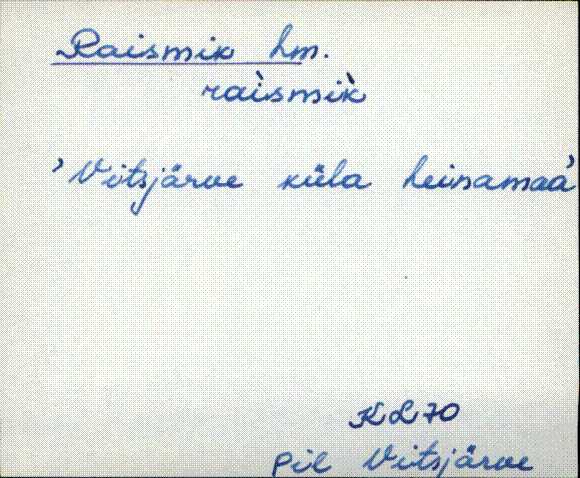 Raismik hm.
raìsmìk
'Vitsjärve küla heinamaa'
KL70
Pil Vitsjärve